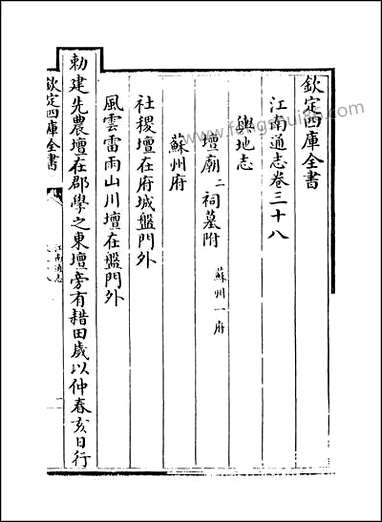 欽定四庫全書
江南通志卷三十八
輿地志
壇廟二祠墓附 蘇州一府
蘇州府
社稷壇在府城盤門外
風雲雷雨山川壇在盤門外
勅建先農壇在郡學之東壇旁有耤田歲以仲春亥日行
欽定四庫全書
江南通志